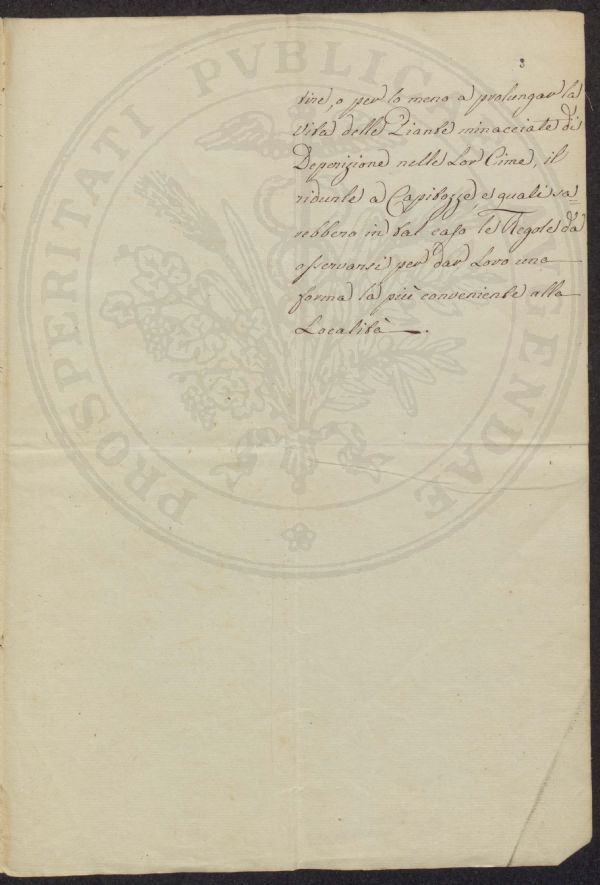 PROSPERITATI PVBLICAE AVGENDAE
3
tire, o per lo meno a prolungar la
Vita delle Piante minacciate di
Deperizione nelle Lor Cime, il
ridurle a Capitozze, e quali sa=
rebbero in tal caso le Regole da
osservarsi per dar Loro una
forma la più conveniente alla
Località.